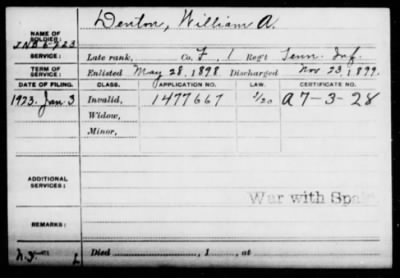 NAME OF SOLDIER: Denton, William A.
SERVICE: Late rank, Co. F, 1 Reg't Tenn. Inf.
TERM OF SERVICE: Enlisted May 28, 1898 Discharged Nov 23, 1899.
DATE OF FILING. CLASS. APPLICATION NO. LAW. CERTIFICATE NO.
1923. Jan 3 Invalid, 1477667 A 7-3-28
Widow,
Minor,
ADDITIONAL SERVICES:
War with Spain
REMARKS:
Died , 1 , at